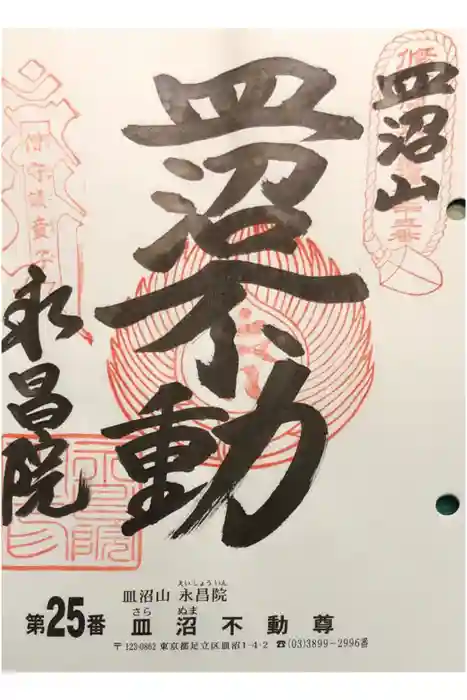 皿沼山
皿沼不動
永昌院
皿沼山 永昌院
えいしょういん
第25番 皿沼不動尊
さら ぬま
〒123-0862 東京都足立区皿沼1-4-2 ☎(03)3899-2996番